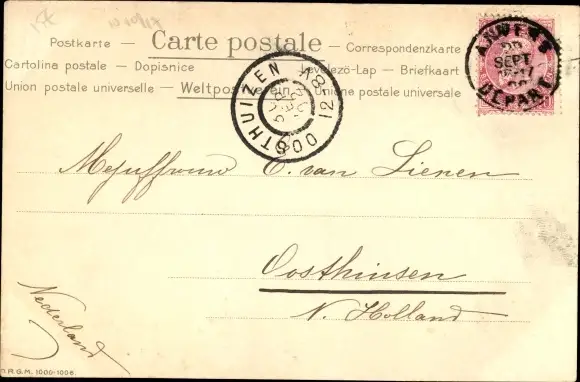 Postkarte — Carte postale — Correspondenzkarte
Cartolina postale — Dopisnice — Levelező-Lap — Briefkaart
Union postale universelle — Weltpostverein — Unione postale universale
ANVERS
SEPT
DEPART
OOSTHUIZEN
Mejuffrouw C. van Lienen
Oosthuisen
N. Holland
Nederland
D.R.G.M. 1006-1008.